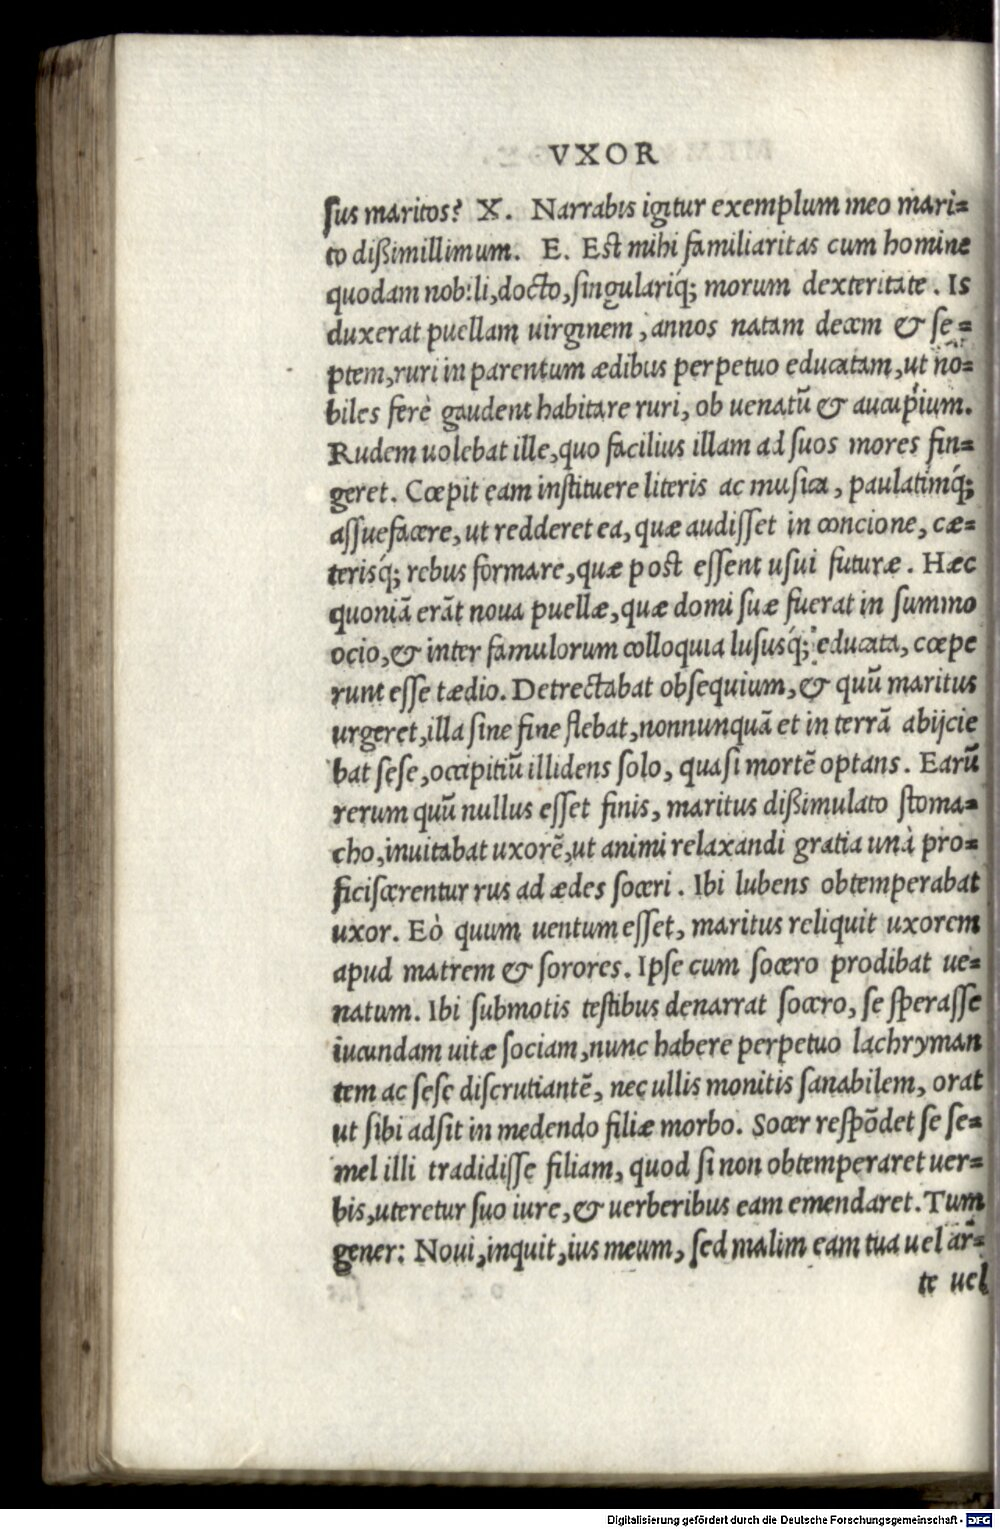 VXOR
ſus maritos? X. Narrabis igitur exemplum meo mari=
to dißimillimum. E. Est mihi familiaritas cum homine
quodam nobili, docto, ſingulariq́; morum dexteritate. Is
duxerat puellam uirginem, annos natam decem & ſe=
ptem, ruri in parentum ædibus perpetuo educatam, ut no=
biles ferè gaudent habitare ruri, ob uenatũ & aucupium.
Rudem uolebat ille, quo facilius illam ad ſuos mores fin=
geret. Cœpit eam instituere literis ac musica, paulatimq́;
aſſuefacere, ut redderet ea, quæ audiſſet in concione, cæ=
terisq́; rebus formare, quæ post eſſent usui futuræ. Hæc
quoniã erãt noua puellæ, quæ domi ſuæ fuerat in ſummo
ocio, & inter famulorum colloquia luſusq́; educata, cœpe
runt eſſe tædio. Detrectabat obſequium, & quũ maritus
urgeret, illa ſine fine flebat, nonnunquã et in terrã abijcie
bat ſeſe, occipitiũ illidens ſolo, quaſi mortẽ optans. Earũ
rerum quũ nullus eſſet finis, maritus dißimulato ſtoma=
cho, inuitabat uxorẽ, ut animi relaxandi gratia unà pro=
ficiſcerentur rus ad ædes ſoceri. Ibi lubens obtemperabat
uxor. Eò quum uentum eſſet, maritus reliquit uxorem
apud matrem & ſorores. Ipſe cum ſocero prodibat ue=
natum. Ibi ſubmotis teſtibus denarrat ſocero, ſe ſperaſſe
iucundam uitæ ſociam, nunc habere perpetuo lachryman
tem ac ſeſe diſcrutiantẽ, nec ullis monitis ſanabilem, orat
ut ſibi adſit in medendo filiæ morbo. Socer reſpõdet ſe ſe=
mel illi tradidiſſe filiam, quod ſi non obtemperaret uer=
bis, uteretur ſuo iure, & uerberibus eam emendaret. Tum
gener: Noui, inquit, ius meum, ſed malim eam tua uel ar=
te uel
Digitalisierung gefördert durch die Deutsche Forschungsgemeinschaft - DFG